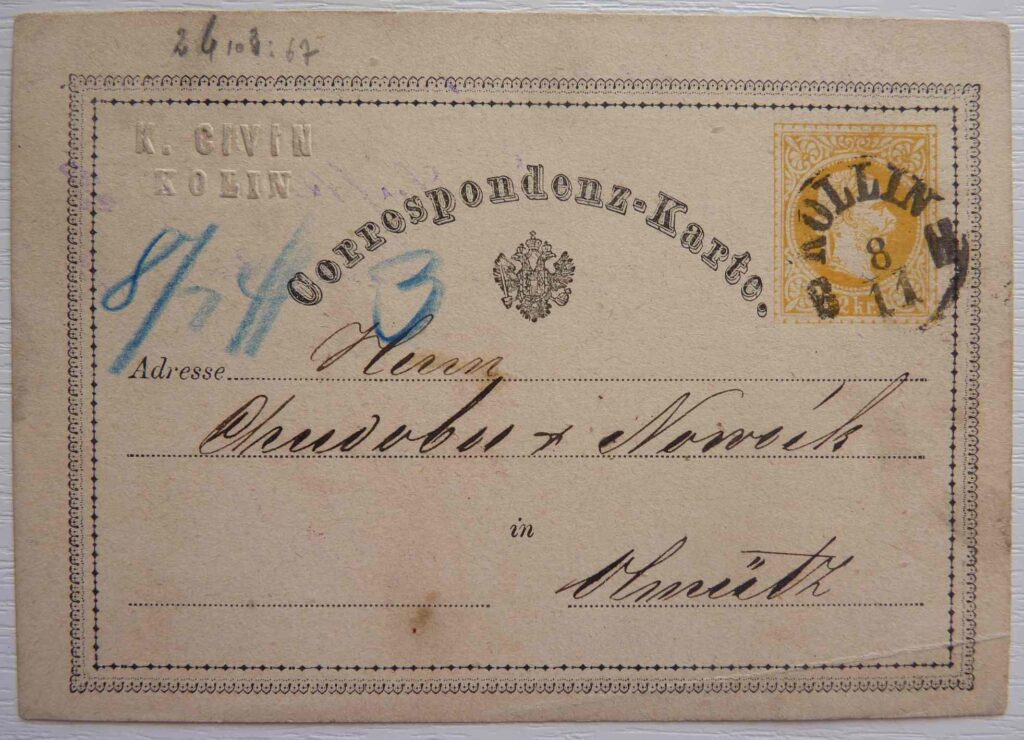 K. CIVIN
KOLIN
Correspondenz-Karte.
KOLLIN
8
11
8/11
3
Adresse Herrn
Chudoba & Nowák
in
Olmütz